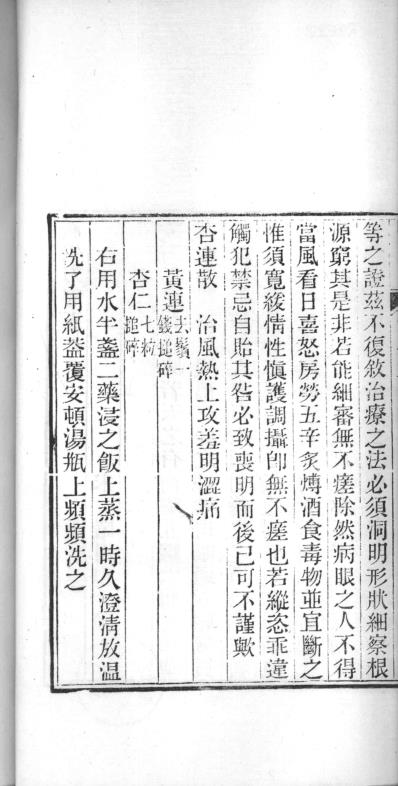 等之證茲不復敘治療之法必須洞明形狀細察根
源窮其是非若能細審無不瘥除然病眼之人不得
當風看日喜怒房勞五辛炙煿酒食毒物並宜斷之
惟須寬緩情性愼護調攝卽無不瘥也若縱恣乖違
觸犯禁忌自貽其咎必致喪明而後已可不謹歟
杏連散 治風熱上攻羞明澀痛
黃連去鬚一錢搥碎
杏仁七粒搥碎
右用水半盞二藥浸之飯上蒸一時久澄淸放温
洗了用紙葢覆安頓湯瓶上頻頻洗之